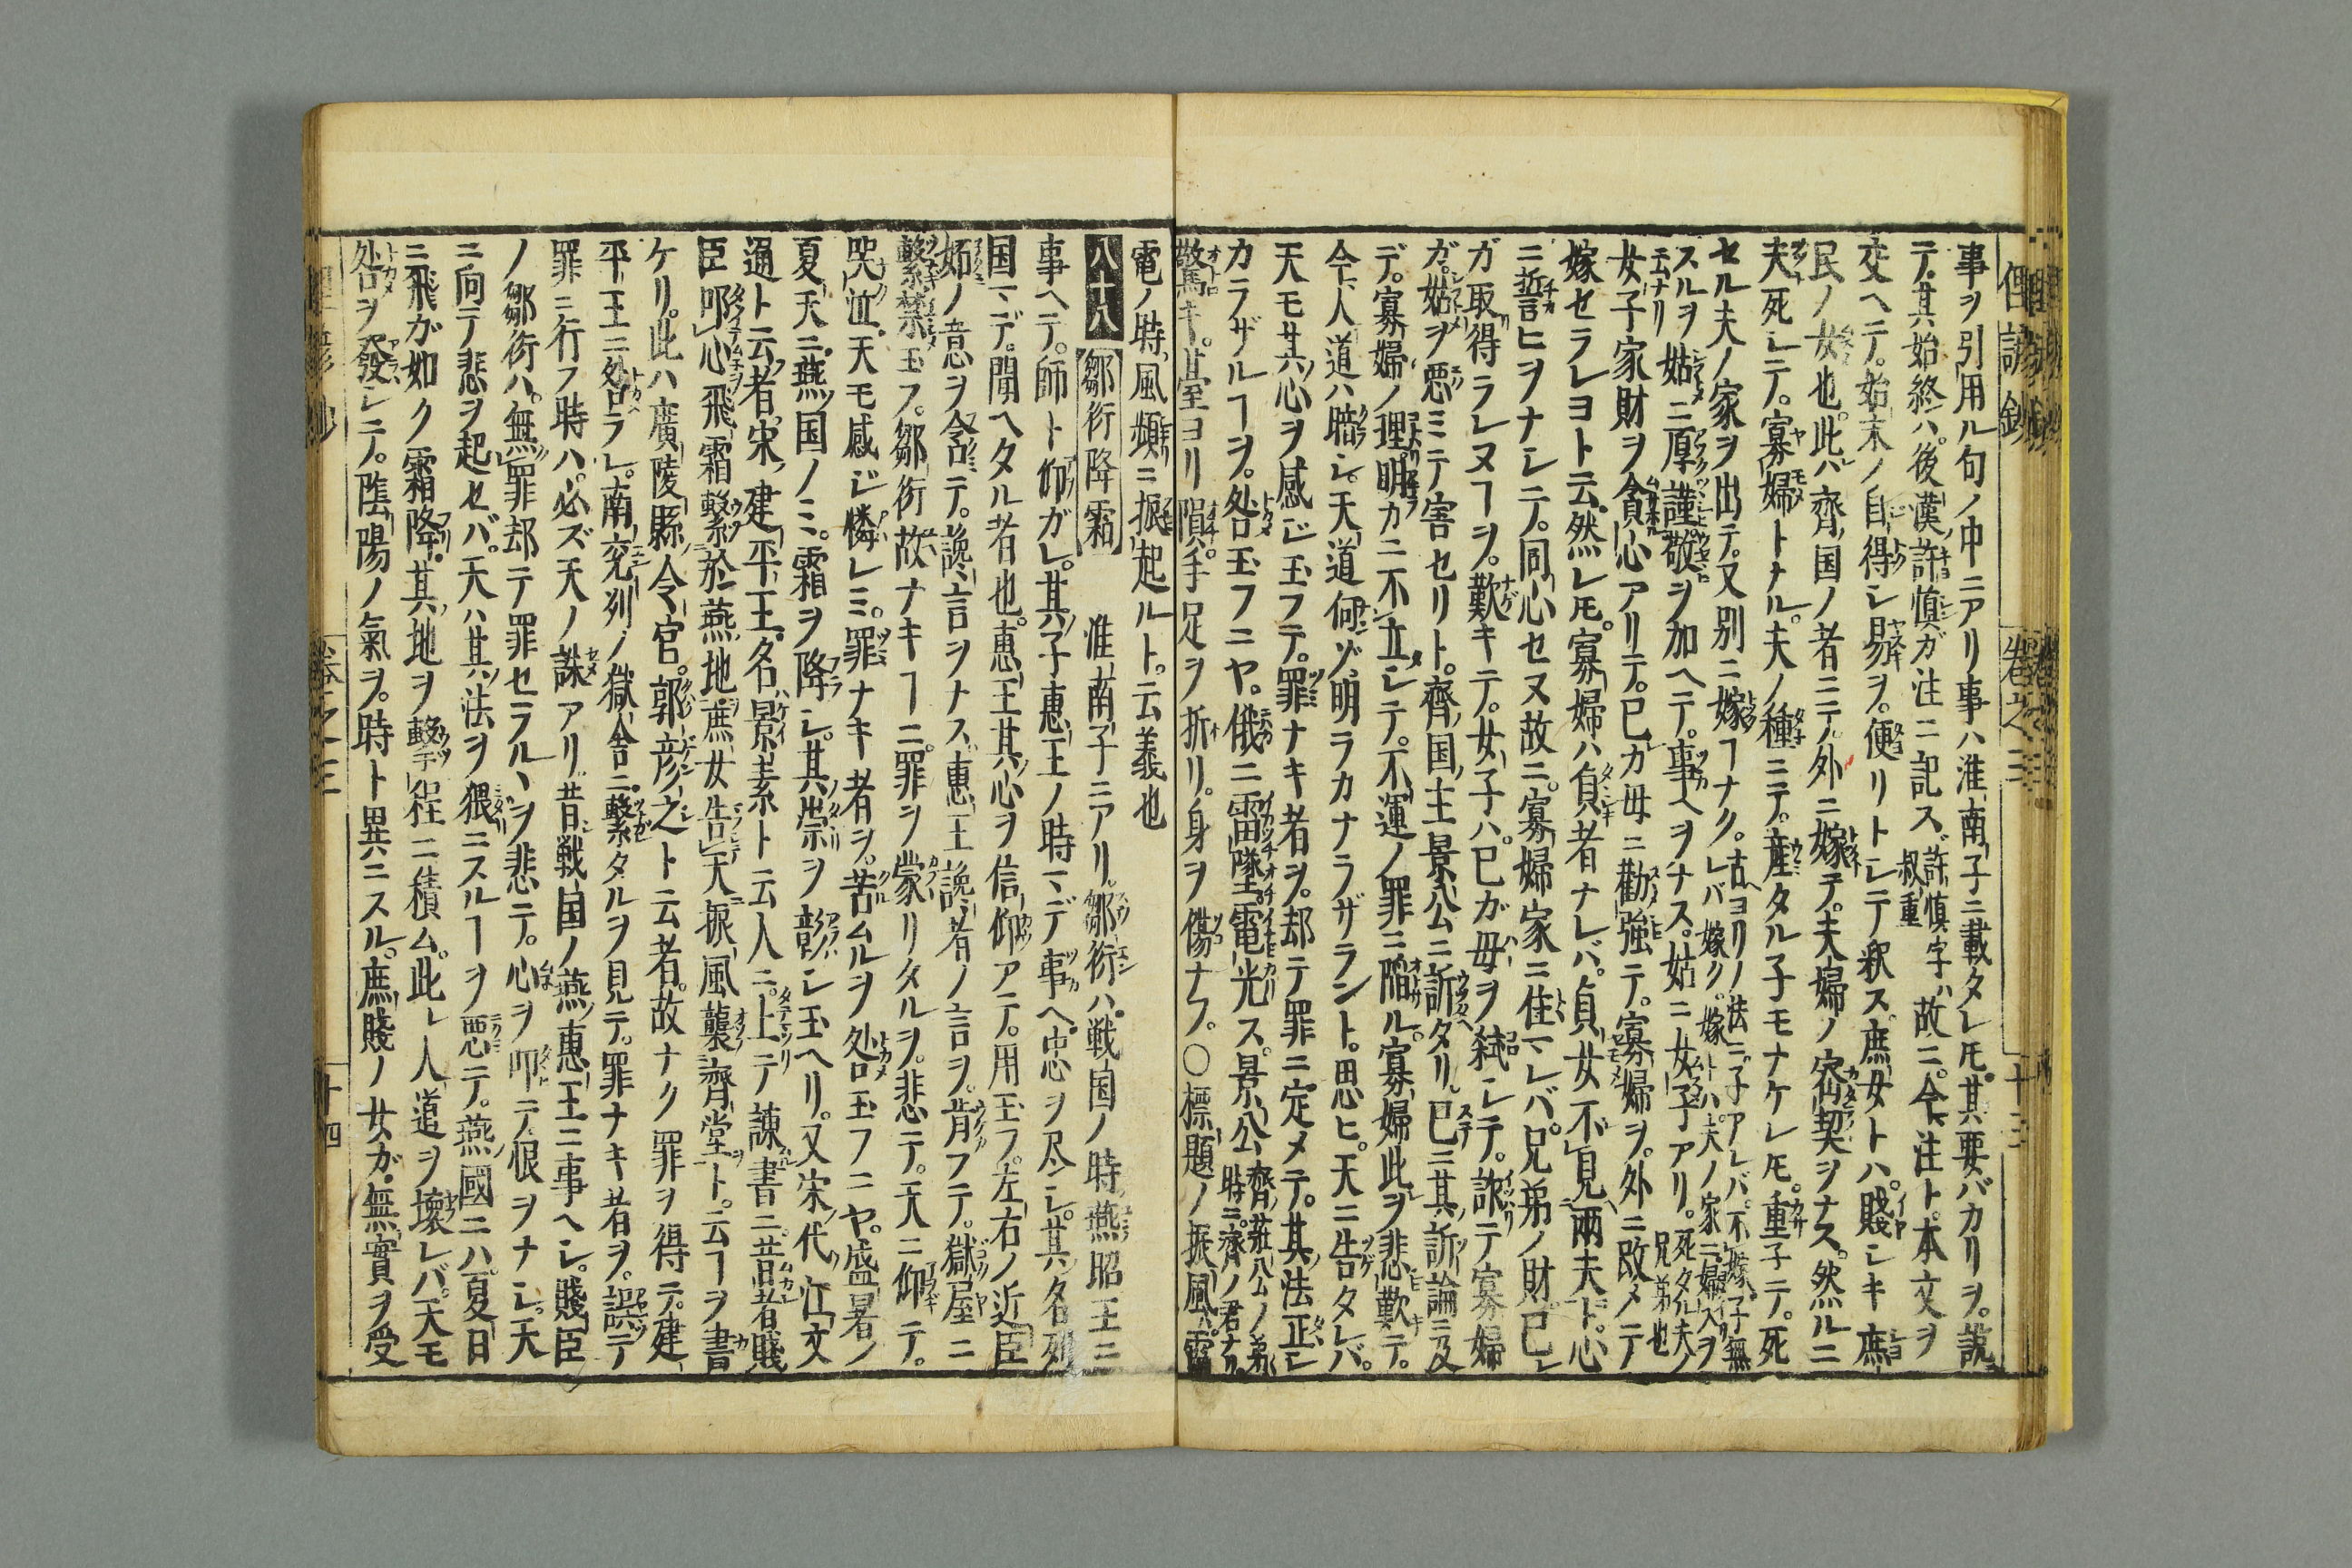 事ヲ引用ル句ノ中ニアリ事ハ淮南子ニ載タレ𪜈其要バカリヲ。説
テ其始終ハ。後漢許慎ガ注ニ記ス許慎字ハ叔重故ニ今注ト。本文ヲ
交ヘテ。始末ノ自得シ易ヲ。便リトシテ釈ス庶女トハ。賤シキ庶
民ノ女也。此ハ齊国ノ者ニテ外ニ嫁テ。夫婦ノ契ヲナス。然ルニ
夫死シテ。寡婦トナル。夫ノ種ニテ。産タル子モナケレ𪜈。重子テ。死
セル夫ノ家ヲ出テ。又別ニ嫁ヿナク。古ヘヨリノ法ニ子アレバ。不嫁子無レバ嫁ク。嫁トハ夫ノ家ニ婦入ヲ
スルヲ云ナリ姑ニ厚謹敬ヲ加ヘテ。事ヘヲナス。姑ニ女子アリ。死タル夫ノ兄弟也
女子家財ヲ貪心アリテ。已カ母ニ勸強テ。寡婦ヲ。外ニ改メテ
嫁セラレヨト云。然レ𪜈。寡婦ハ貞者ナレバ。貞女不見兩夫ト。心
ニ誓ヒヲナシテ。同心セヌ故ニ。寡婦家ニ住マレバ。兄弟ノ財已レ
ガ取得ラレヌヿヲ。歎キテ。女子ハ。已ガ母ヲ弑シテ。詐テ寡婦
ガ。姑ヲ悪ミテ害セリト。齊国ノ主景公ニ訴タリ。已ニ其訴論ニ及
デ。寡婦ノ理明カニ不立シテ。不運ノ罪ニ陷ル。寡婦此ヲ悲歎テ。
今人道ハ職シ。天道何ゾ明ラカナラザラント。思ヒ。天ニ告タレバ。
天モ其心ヲ感ジ玉フテ。罪ナキ者ヲ。却テ罪ニ定メテ。其法正シ
カラザルヿヲ。咎玉フニヤ。俄ニ雷墜。電光ス。景公齊ノ荘公ノ弟時ニ。齊ノ君ナリ
驚キ。䑓ヨリ隕。手足ヲ折リ。身ヲ傷ナフ。○標題ノ振風ハ。雷
電ノ時。風頻ニ振起ルト。云義也
八十八 鄒衍降霜 淮南子ニアリ。鄒衍ハ。戦国ノ時燕昭王ニ
事ヘテ。師ト仰ガレ。其子惠王ノ時マデ事ヘ。忠ヲ尽シ。其名列
国マデ。聞ヘタル者也。惠王其心ヲ信仰アテ。用玉フ。左右ノ近臣
妬ノ意ヲ含テ。讒言ヲナス惠王讒者ノ言ヲ。肯フテ。獄屋ニ
繋禁玉フ。鄒衍故ナキヿニ罪ヲ蒙リタルヲ。悲テ。天ニ仰テ。
哭泣。天モ感ジ憐レミ。罪ナキ者ヲ。苦ムルヲ咎玉フニヤ。盛暑ノ
夏天ニ。燕国ノミ。霜ヲ降シ。其祟ヲ彰シ玉ヘリ。又宋代江文
通ト云者。宋建平王。名景素ト云人ニ。上テ諫書ニ。昔者賤
臣叩心飛霜繋於燕地庶女告天振風襲齊堂ト。云ヿヲ書
ケリ。此ハ廣陵縣令官。郭彦之ト云者。故ナク罪ヲ得テ。建
平王ニ咎ラレ。南兗州ノ獄舎ニ繋タルヲ見テ。罪ナキ者ヲ。誤テ
罪ニ行フ時ハ。必ズ天ノ誅アリ昔戦国ノ燕惠王ニ事ヘシ。賤臣
ノ鄒衍ハ。無罪却テ罪セラルヽヲ悲テ。心ヲ叩テ恨ヲナシ。天
ニ向テ悲ヲ起セバ。天ハ其法ヲ猥ニスルヿヲ悪テ。燕國ニハ。夏日
ニ飛ガ如ク霜降。其地ヲ撃程ニ積ム。此レ人道ヲ壊レバ。天モ
咎ヲ發シテ。陰陽ノ氣ヲ。時ト異ニスル。庶賤ノ女ガ。無實ヲ受